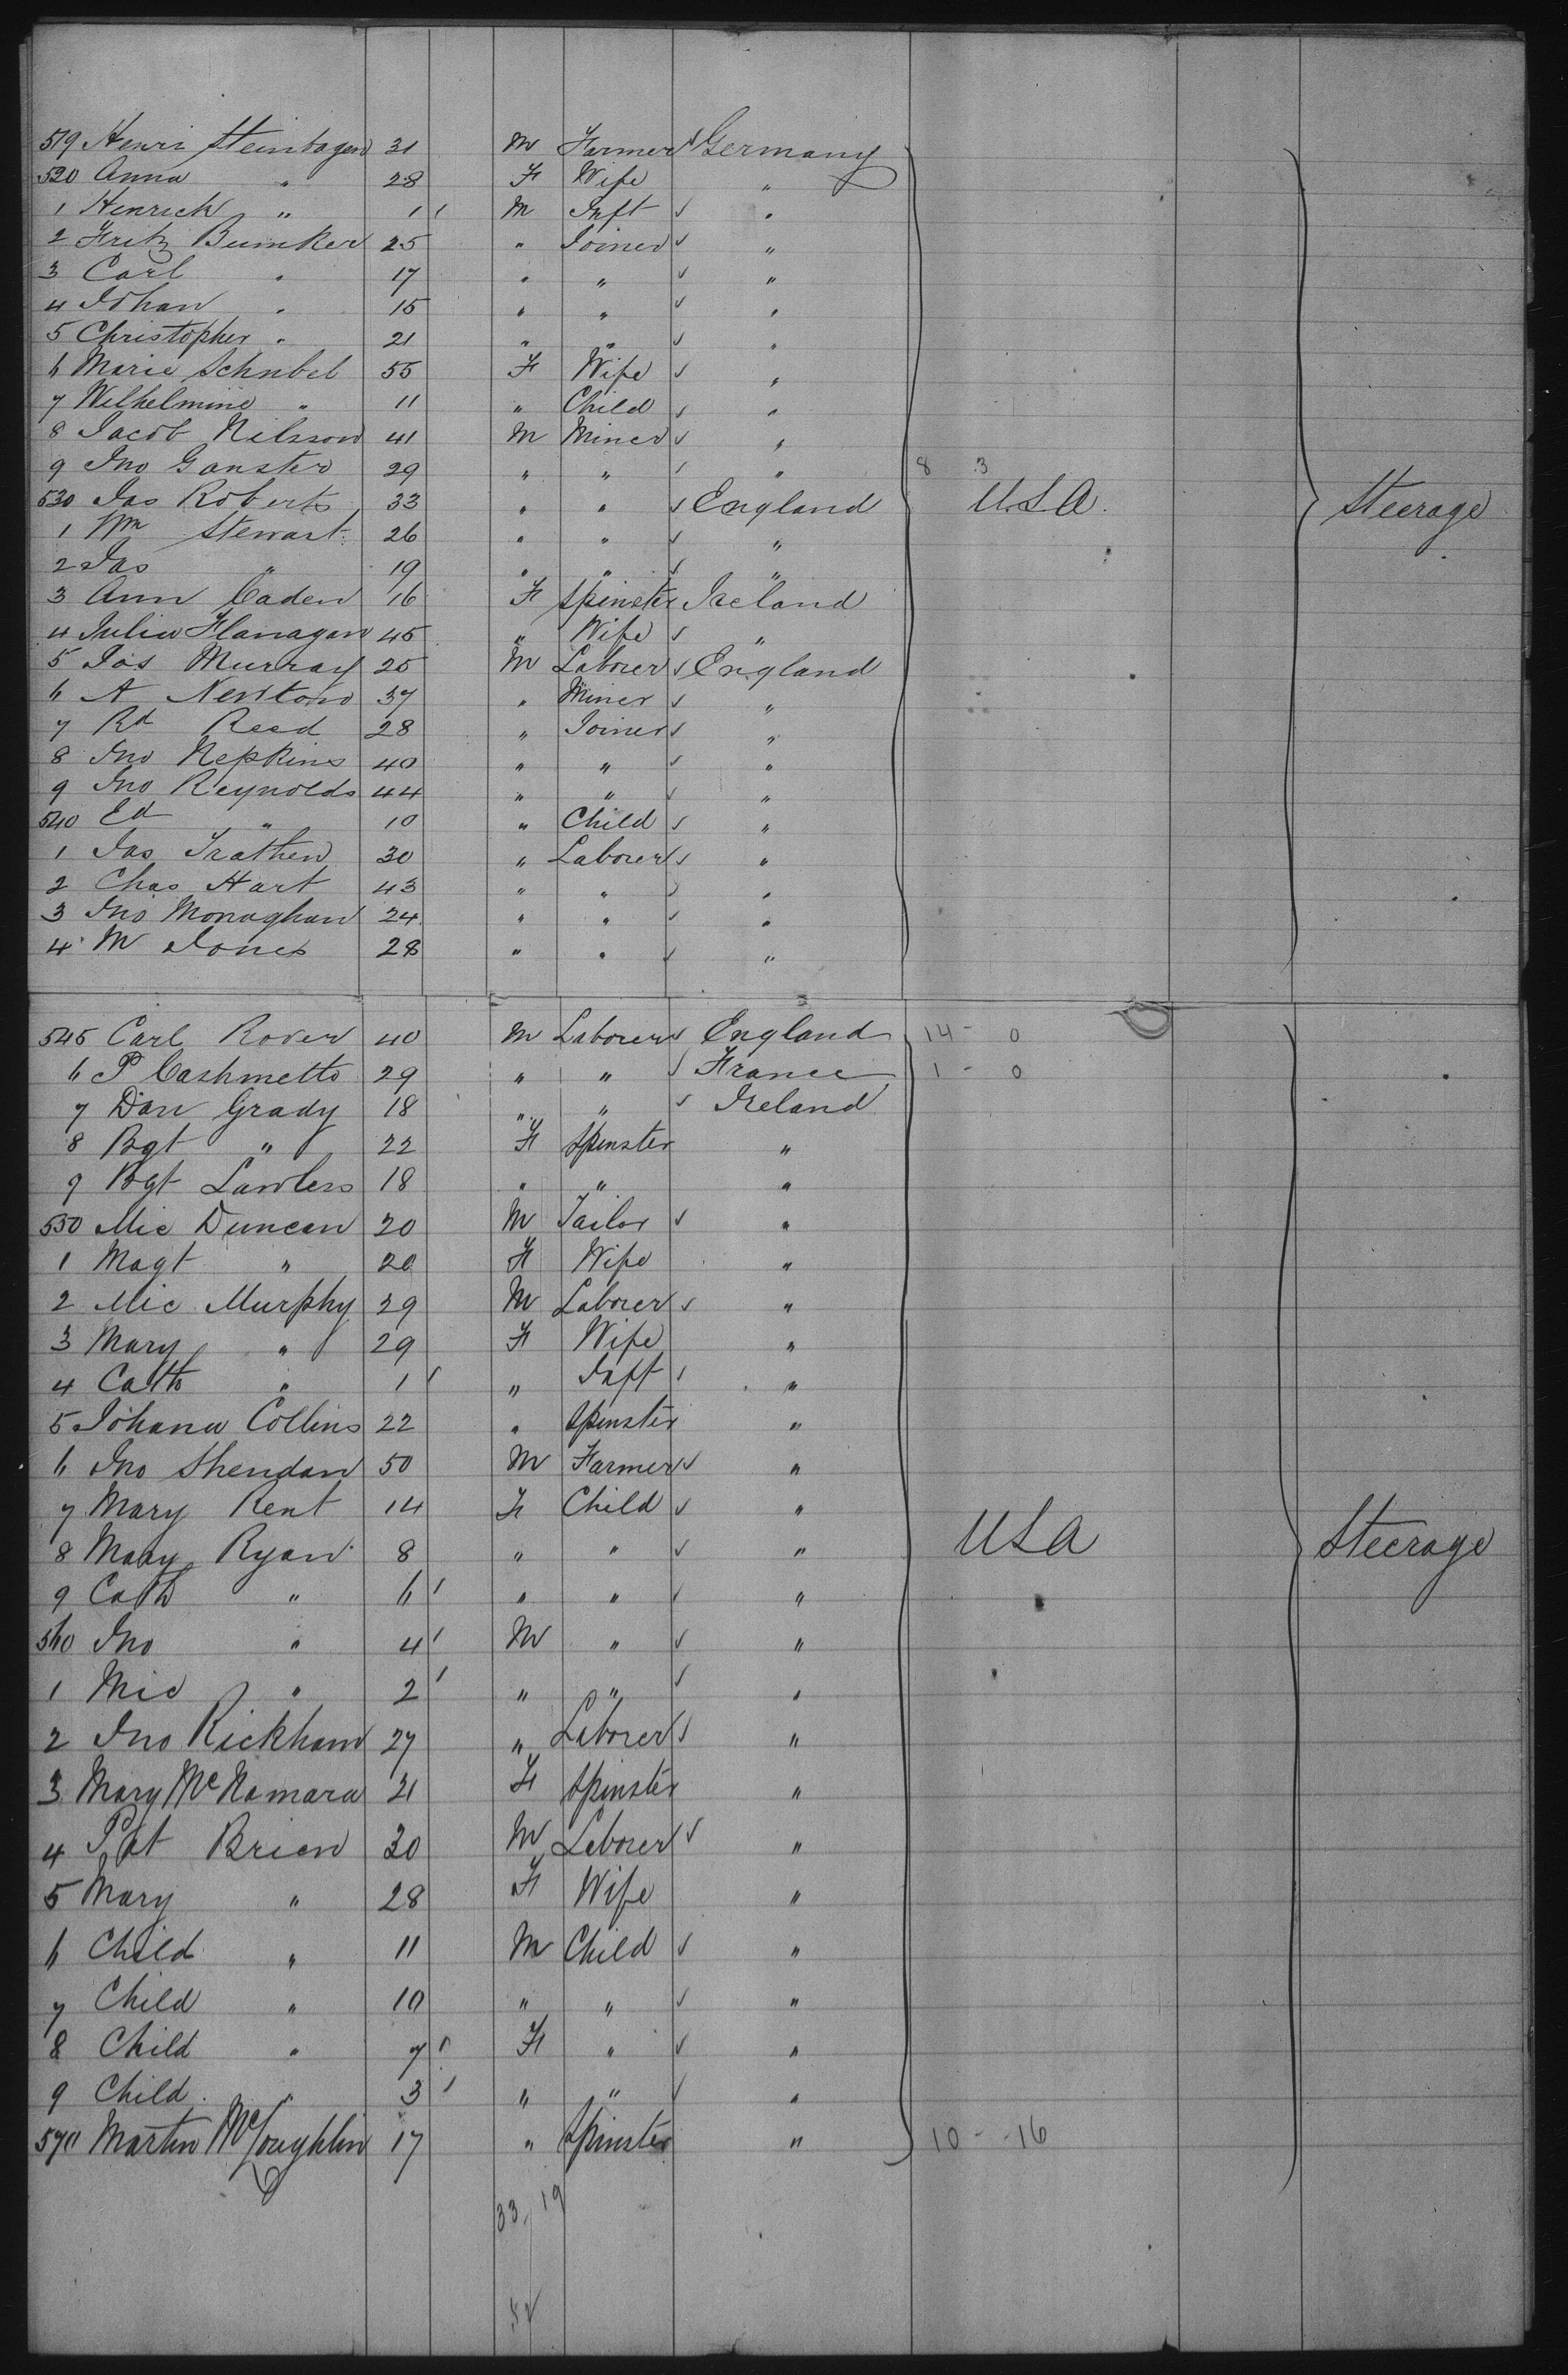 519 Henri Steinhagen 31 M Farmer Germany
520 Anna " 28 F Wife "
1 Henrich " 1 M Inft "
2 Fritz Bumker 25 " Joiner "
3 Carl " 17 " " "
4 Johan " 15 " " "
5 Christopher " 21 " " "
6 Marie Schnbel 55 F Wife "
7 Wilhelmine " 11 " Child "
8 Jacob Nilsson 41 M Miner "
9 Jno Ganster 29 " " " 8 3
530 Jas Roberts 33 " " England U.S.A. Steerage
1 Wm Stewart 26 " " "
2 Jas " 19 " " "
3 Ann Caden 16 F Spinster Ireland
4 Julia Flanagan 45 " Wife "
5 Jos Murray 25 M Laborer England
6 A Newton 37 " Miner "
7 Rd Reed 28 " Joiner "
8 Jno Nepkins 40 " " "
9 Jno Reynolds 44 " " "
540 Ed " 10 " Child "
1 Jas Trathen 30 " Laborer "
2 Chas Hart 43 " " "
3 Jno Monaghan 24 " " "
4 M Jones 28 " " "
545 Carl Rover 40 M Laborer England 14 - 0
6 P Cashmetto 29 " " France 1 - 0
7 Dan Grady 18 " " Ireland
8 Bgt " 22 F Spinster "
9 Bgt Lawless 18 " " "
550 Mic Duncan 20 M Tailor "
1 Magt " 20 F Wife "
2 Mic Murphy 29 M Laborer "
3 Mary " 29 F Wife "
4 Cath " 1 " Inft "
5 Johana Collins 22 " Spinster "
6 Jno Sheridan 50 M Farmer "
7 Mary Kent 14 F Child "
8 Mary Ryan 8 " " " USA Steerage
9 Cath " 6 " " "
560 Jno " 4 M " "
1 Mic " 2 " " "
2 Jno Rickham 27 " Laborer "
3 Mary McNamara 21 F Spinster "
4 Pat Brien 30 M Laborer "
5 Mary " 28 F Wife "
6 Child " 11 M Child "
7 Child " 10 " " "
8 Child " 7 F " "
9 Child " 3 " " "
570 Martin McLoughlin 17 " Spinster " 10 - 16
33 19
52